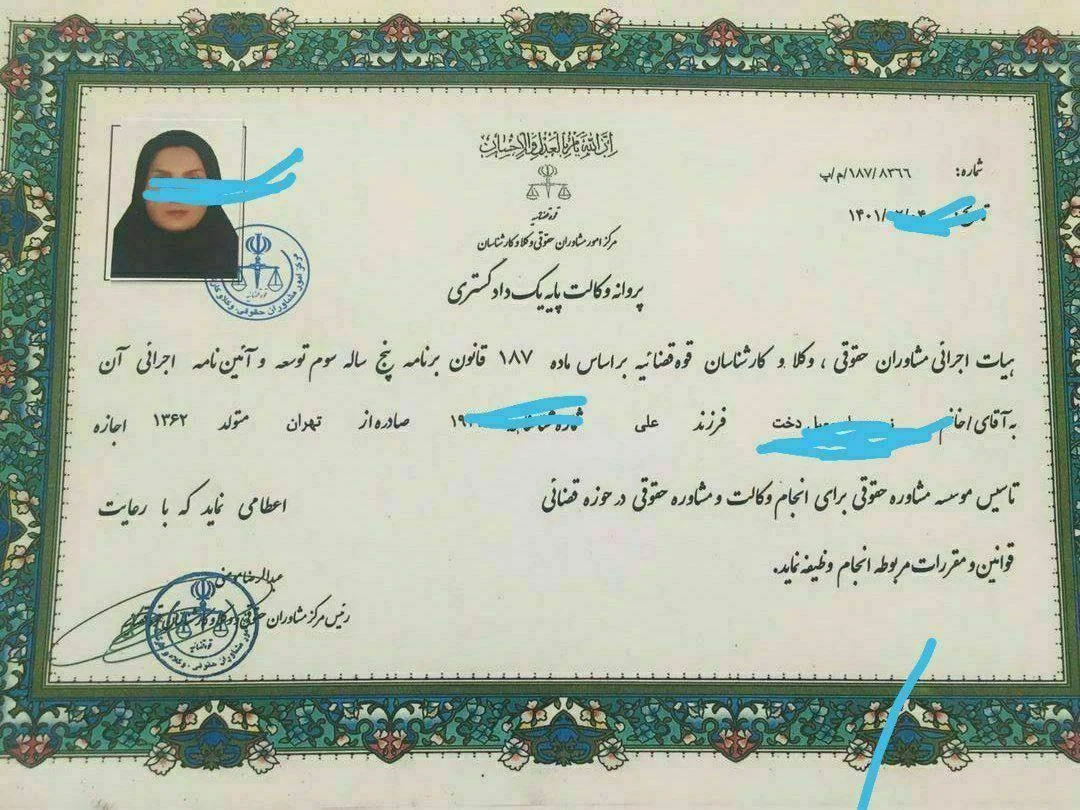 ان الله یأمر بالعدل والاحسان
قوه قضائیه
مرکز امور مشاوران حقوقی وکلا و کارشناسان
شماره: ۱۸۷/۸۳۶۶/م/پ
۱۴۰۱/
پروانه وکالت پایه یک دادگستری
هیات اجرائی مشاوران حقوقی ، وکلا و کارشناسان قوه قضائیه بر اساس ماده ۱۸۷ قانون برنامه پنج ساله سوم توسعه و آئین نامه اجرائی آن
به آقای/خانم دخت فرزند علی صادره از تهران متولد ۱۳۶۲ اجازه
تاسیس موسسه مشاوره حقوقی برای انجام وکالت و مشاوره حقوقی در حوزه قضائی اعطا می نماید که با رعایت
قوانین و مقررات مربوطه انجام وظیفه نماید.
رئیس مرکز مشاوران حقوقی